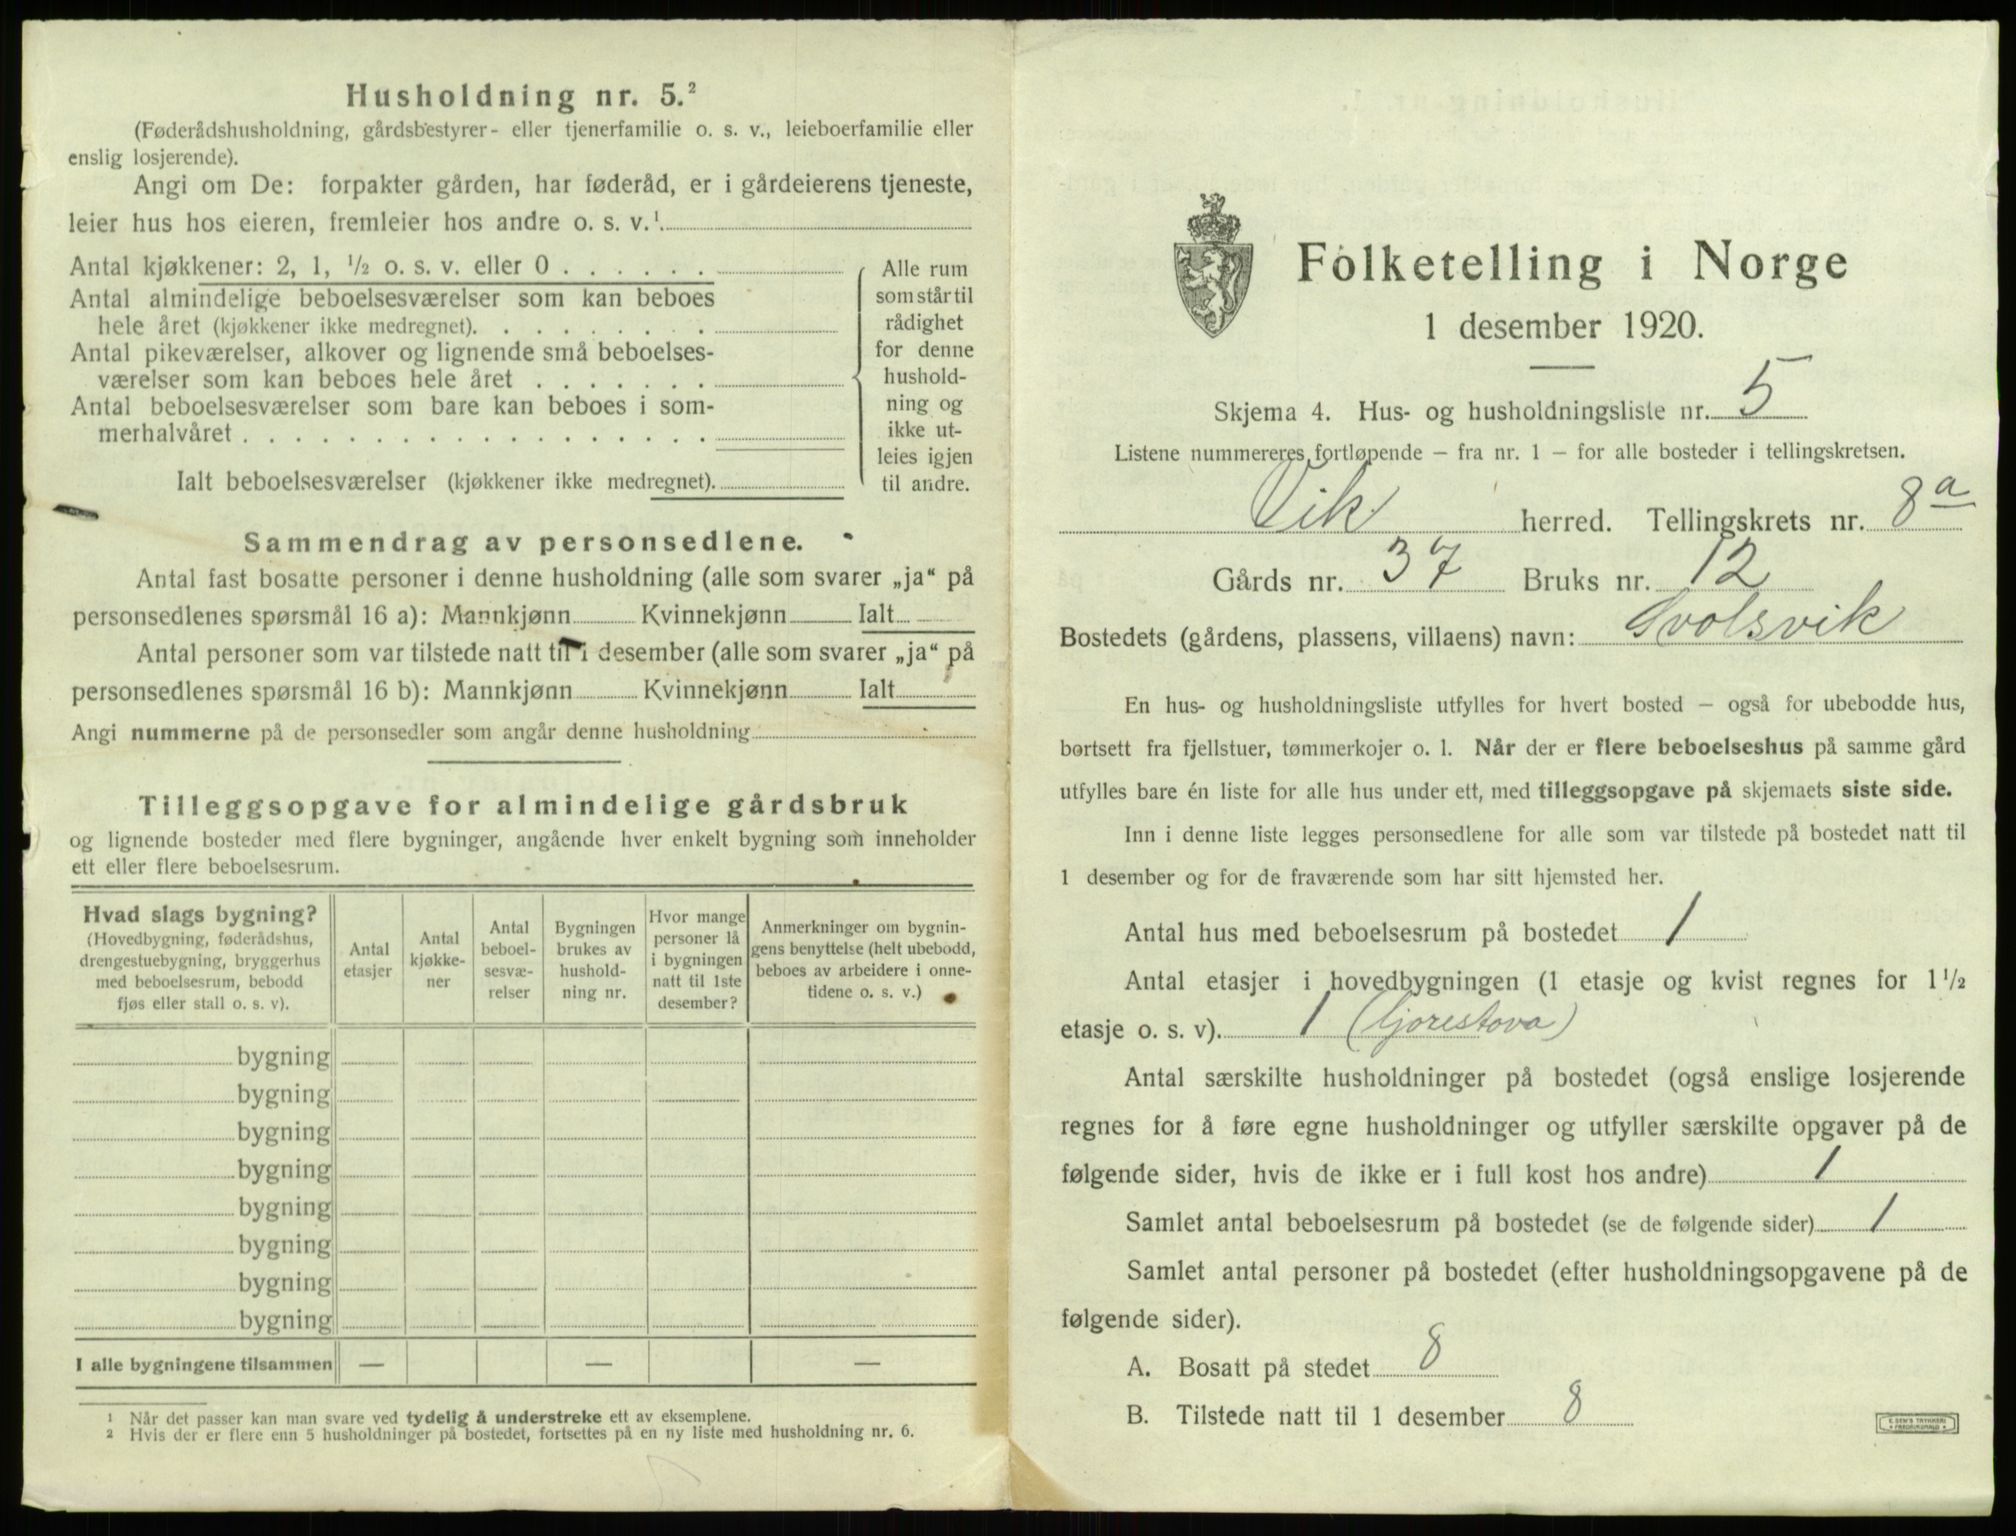 Husholdning nr. 5.²
(Føderådshusholdning, gårdsbestyrer- eller tjenerfamilie o. s. v., leieboerfamilie eller
enslig losjerende).
Angi om De: forpakter gården, har føderåd, er i gårdeierens tjeneste,
leier hus hos eieren, fremleier hos andre o. s. v.¹
Antal kjøkkener: 2, 1, ½ o. s. v. eller 0
Antal almindelige beboelsesværelser som kan beboes
hele året (kjøkkener ikke medregnet).
Antal pikeværelser, alkover og lignende små beboelses-
værelser som kan beboes hele året
Antal beboelsesværelser som bare kan beboes i som-
merhalvåret
Ialt beboelsesværelser (kjøkkener ikke medregnet).
Alle rum
som står til
rådighet
for denne
hushold-
ning og
ikke ut-
leies igjen
til andre.
Sammendrag av personsedlene.
Antal fast bosatte personer i denne husholdning (alle som svarer „ja“ på
personsedlenes spørsmål 16 a): Mannkjønn Kvinnekjønn Ialt
Antal personer som var tilstede natt til 1 desember (alle som svarer „ja“ på
personsedlenes spørsmål 16 b): Mannkjønn Kvinnekjønn Ialt
Angi nummerne på de personsedler som angår denne husholdning
Tilleggsopgave for almindelige gårdsbruk
og lignende bosteder med flere bygninger, angående hver enkelt bygning som inneholder
ett eller flere beboelsesrum.
Hvad slags bygning?
(Hovedbygning, føderådshus,
drengestuebygning, bryggerhus
med beboelsesrum, bebodd
fjøs eller stall o. s. v).
Antal
etasjer
Antal
kjøkke-
ner
Antal
beboel-
sesvæ-
relser
Bygningen
brukes av
hushold-
ning nr.
Hvor mange
personer lå
i bygningen
natt til 1ste
desember?
Anmerkninger om bygnin-
gens benyttelse (helt ubebodd,
beboes av arbeidere i onne-
tidene o. s. v.)
bygning
bygning
bygning
bygning
bygning
bygning
bygning
bygning
I alle bygningene tilsammen — — —
¹ Når det passer kan man svare ved tydelig å understreke ett av eksemplene.
² Hvis der er flere enn 5 husholdninger på bostedet, fortsettes på en ny liste med husholdning nr. 6.
Folketelling i Norge
1 desember 1920.
Skjema 4. Hus- og husholdningsliste nr. 5
Listene nummereres fortløpende – fra nr. 1 – for alle bosteder i tellingskretsen.
Vik herred. Tellingskrets nr. 8a
Gårds nr. 37 Bruks nr. 12
Bostedets (gårdens, plassens, villaens) navn: Svolsvik
En hus- og husholdningsliste utfylles for hvert bosted – også for ubebodde hus,
bortsett fra fjellstuer, tømmerkojer o. l. Når der er flere beboelseshus på samme gård
utfylles bare én liste for alle hus under ett, med tilleggsopgave på skjemaets siste side.
Inn i denne liste legges personsedlene for alle som var tilstede på bostedet natt til
1 desember og for de fraværende som har sitt hjemsted her.
Antal hus med beboelsesrum på bostedet 1
Antal etasjer i hovedbygningen (1 etasje og kvist regnes for 1½
etasje o. s. v). 1 (ljorestova)
Antal særskilte husholdninger på bostedet (også enslige losjerende
regnes for å føre egne husholdninger og utfyller særskilte opgaver på de
følgende sider, hvis de ikke er i full kost hos andre) 1
Samlet antal beboelsesrum på bostedet (se de følgende sider) 1
Samlet antal personer på bostedet (efter husholdningsopgavene på de
følgende sider).
A. Bosatt på stedet 8
B. Tilstede natt til 1 desember 8
E. SEM'S TRYKKERI
• FREDRIKSHALD •